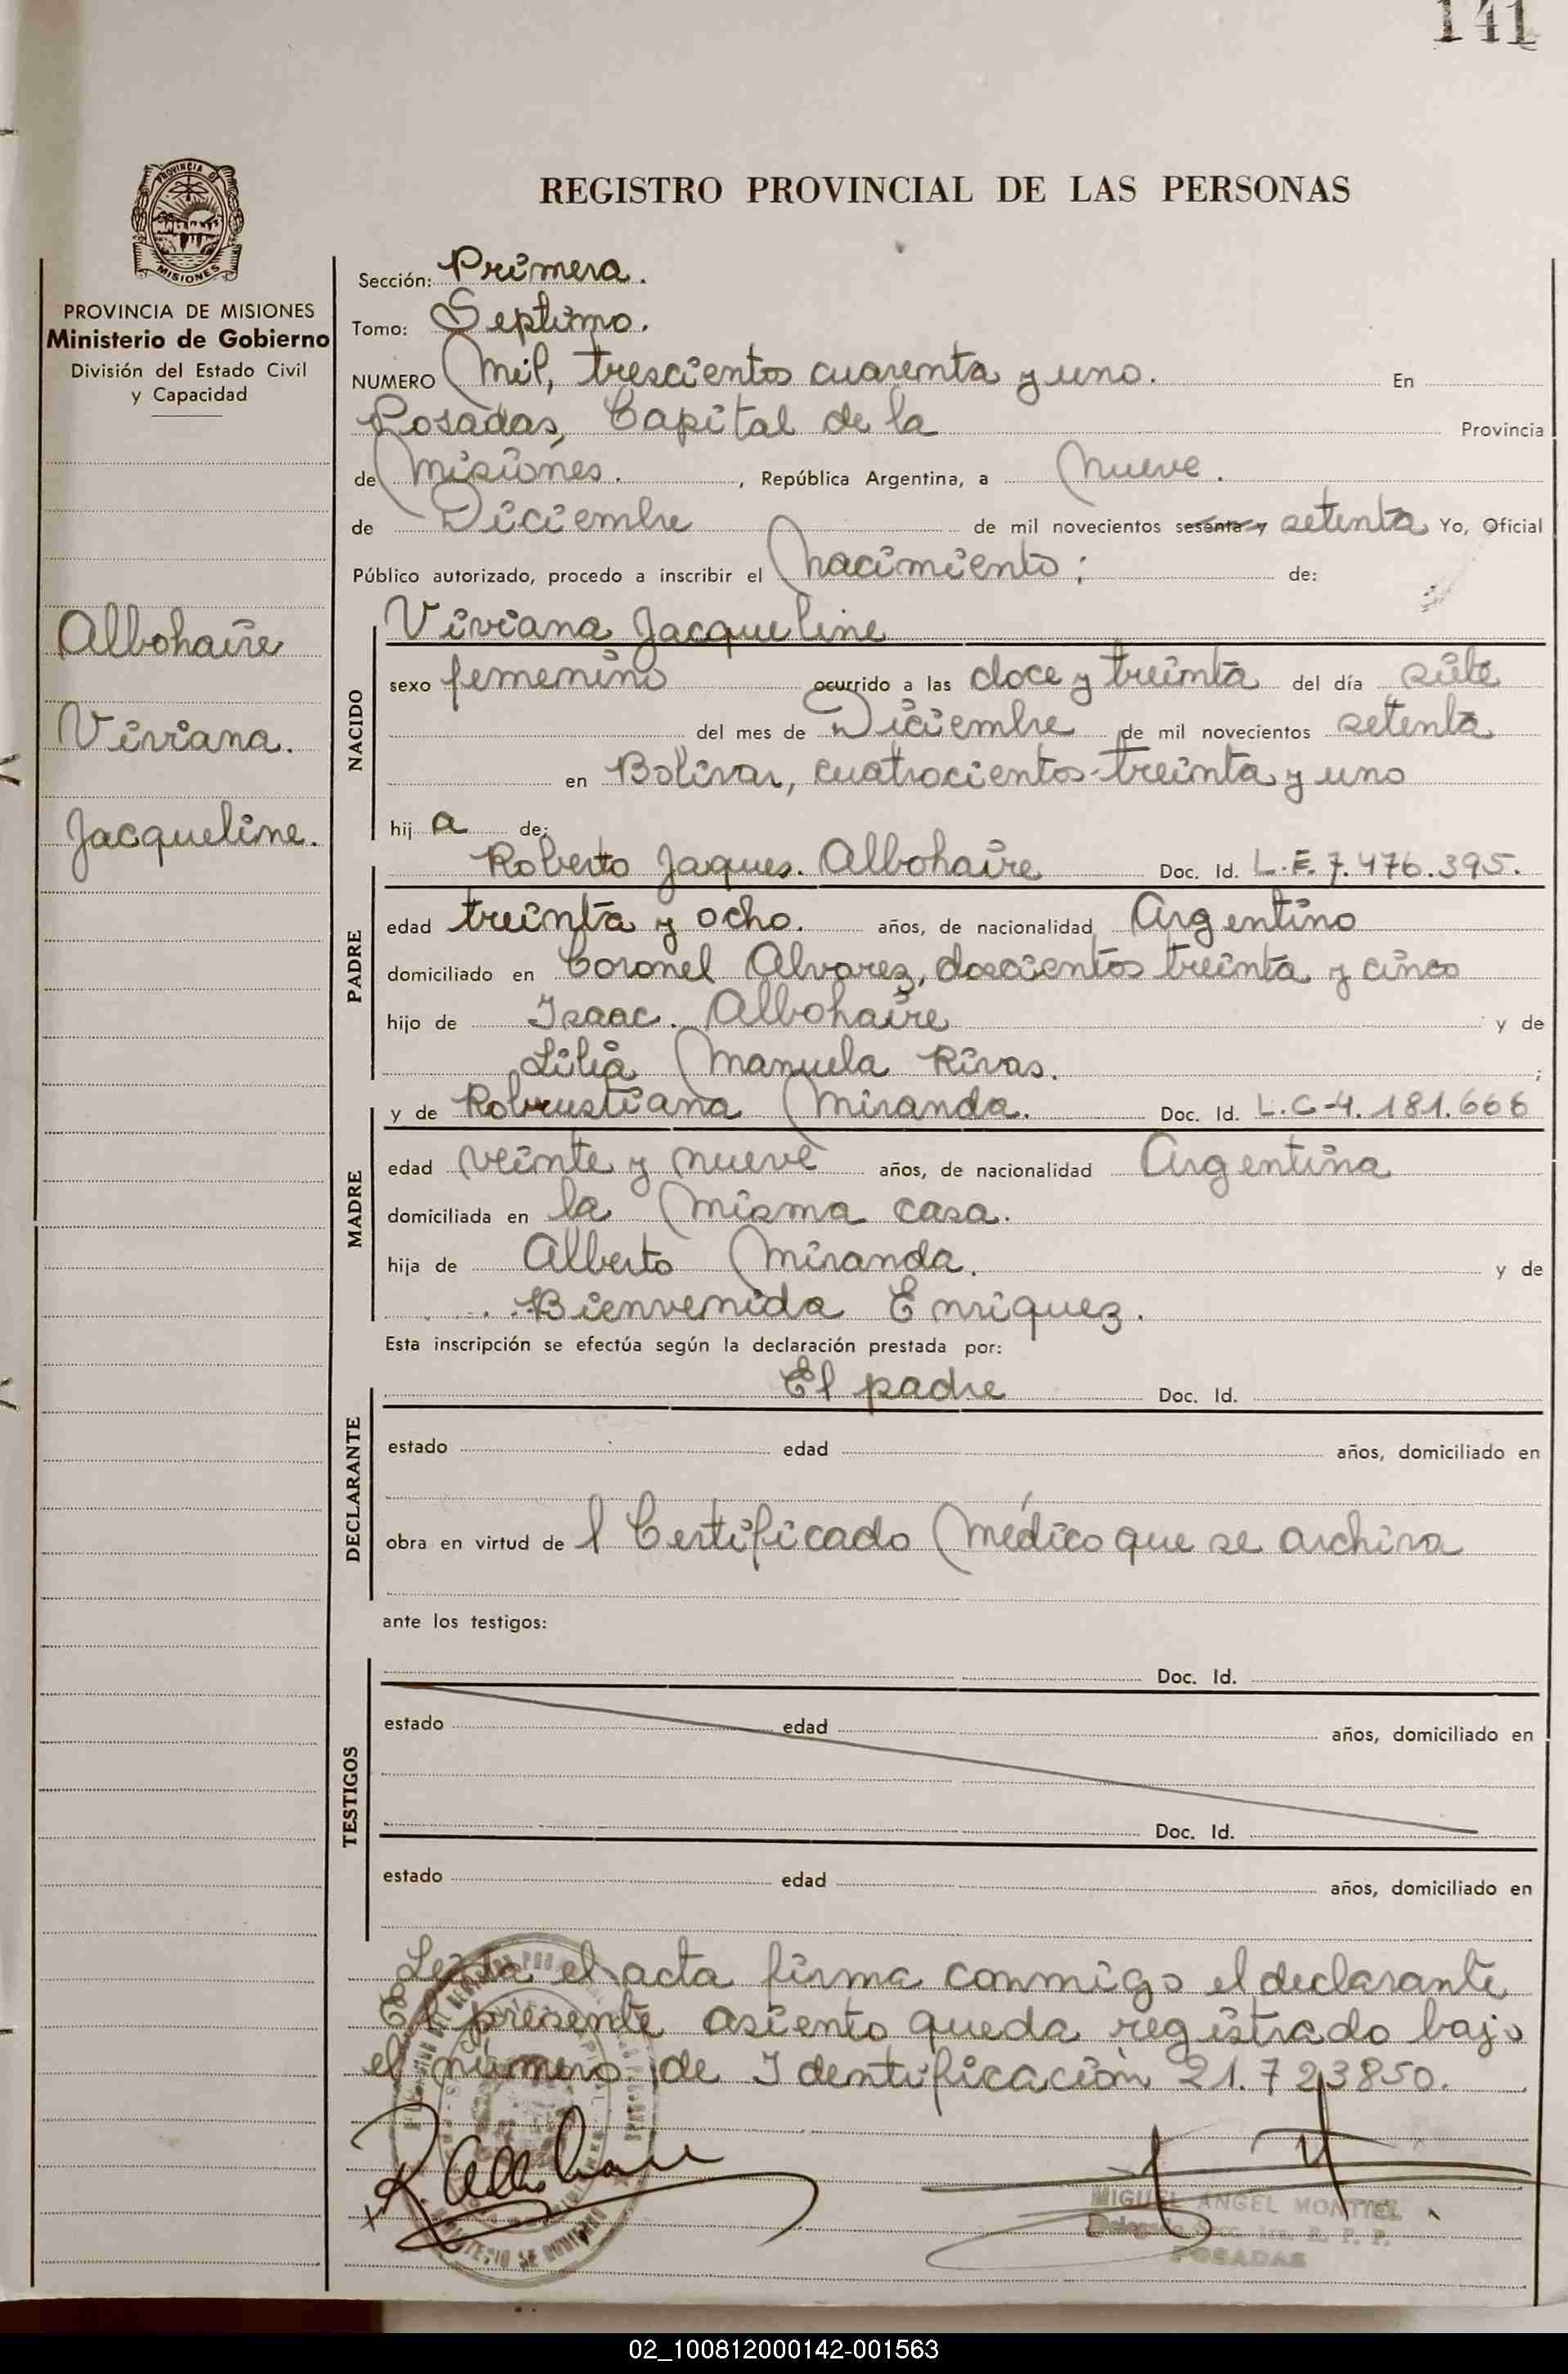 141
PROVINCIA DE
MISIONES
REGISTRO PROVINCIAL DE LAS PERSONAS
PROVINCIA DE MISIONES
Ministerio de Gobierno
División del Estado Civil
y Capacidad
Albohaire
Viviana.
Jacqueline.
Sección: Primera.
Tomo: Septimo.
NUMERO Mil, trescientos cuarenta y uno. En
Posadas, Capital de la Provincia
de Misiones. , República Argentina, a Nueve.
de Diciembre de mil novecientos sesenta y setenta Yo, Oficial
Público autorizado, procedo a inscribir el Nacimiento: de:
NACIDO
Viviana Jacqueline
sexo femenino ocurrido a las doce y treinta del día siete
del mes de Diciembre de mil novecientos setenta
en Bolivar, cuatrocientos treinta y uno
hij a de:
PADRE
Roberto Jaques. Albohaire Doc. Id. L.E.7.476.395.
edad treinta y ocho. años, de nacionalidad Argentino
domiciliado en Coronel Alvarez, doscientos treinta y cinco
hijo de Isaac. Albohaire y de
Lilia Manuela Rivas. ;
MADRE
y de Robustiana Miranda. Doc. Id. L.C-4.181.666
edad veinte y nueve años, de nacionalidad Argentina
domiciliada en la misma casa.
hija de Alberto Miranda. y de
Bienvenida Enriquez.
Esta inscripción se efectúa según la declaración prestada por:
DECLARANTE
El padre Doc. Id.
estado edad años, domiciliado en
obra en virtud de l Certificado Médico que se archiva
ante los testigos:
TESTIGOS
Doc. Id.
estado edad años, domiciliado en
Doc. Id.
estado edad años, domiciliado en
Leida el acta firma conmigo el declarante
El presente asiento queda registrado bajo
el número de Identificación 21.723850.
R. Albohaire
MIGUEL ANGEL MONTIEL
Delegado Secc. 1ra. R. P. P.
POSADAS
02_100812000142-001563